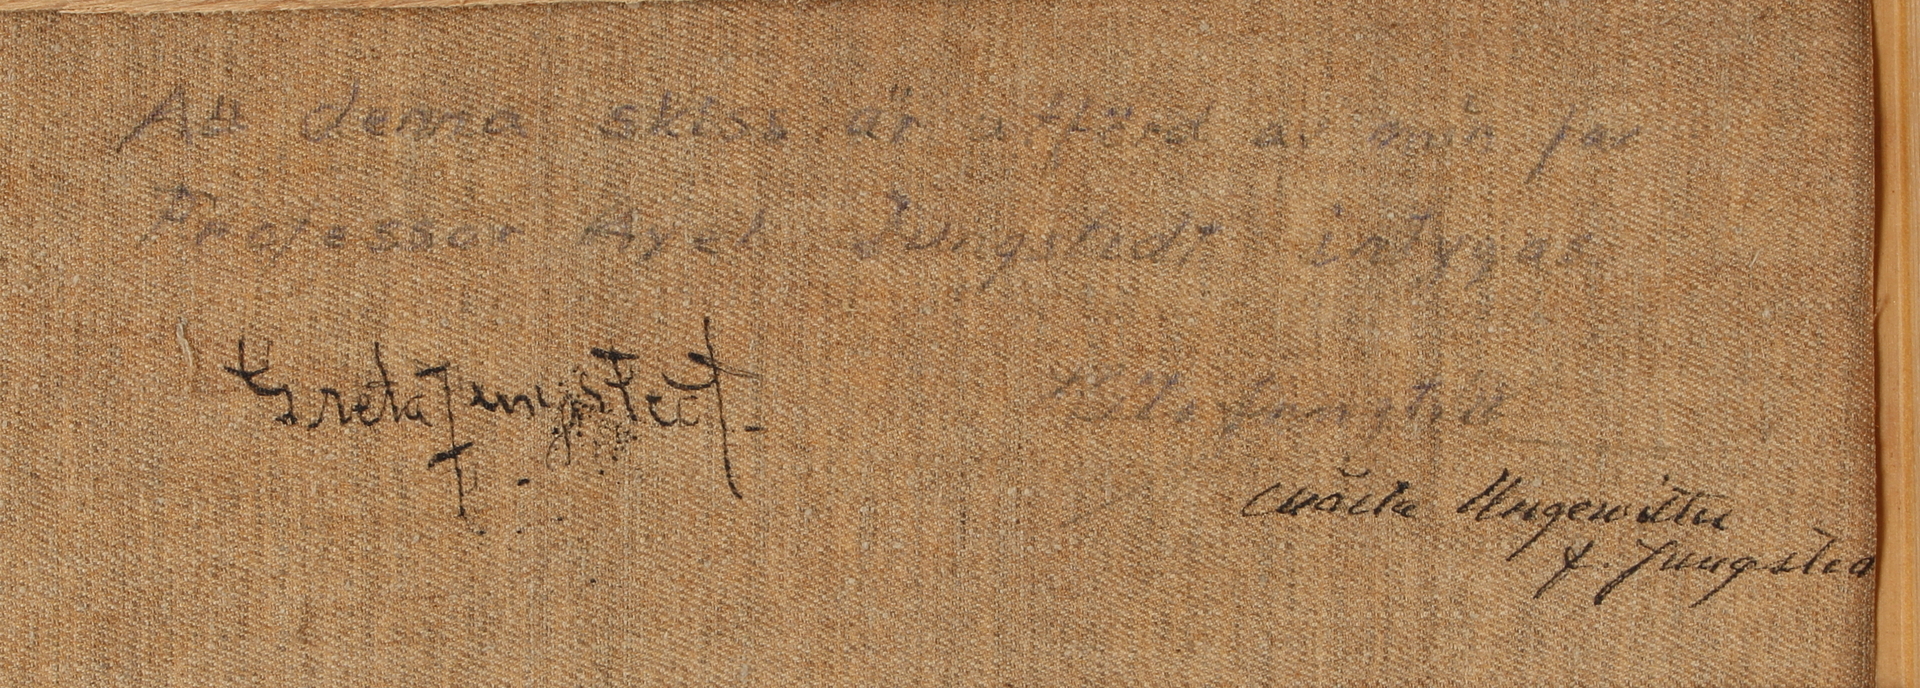 Att denna skiss är utförd av min far
Professor Axel Jungstedt intygar.
Greta Jungstedt.
Jungstedt
Ungewitter
f. Jungsted